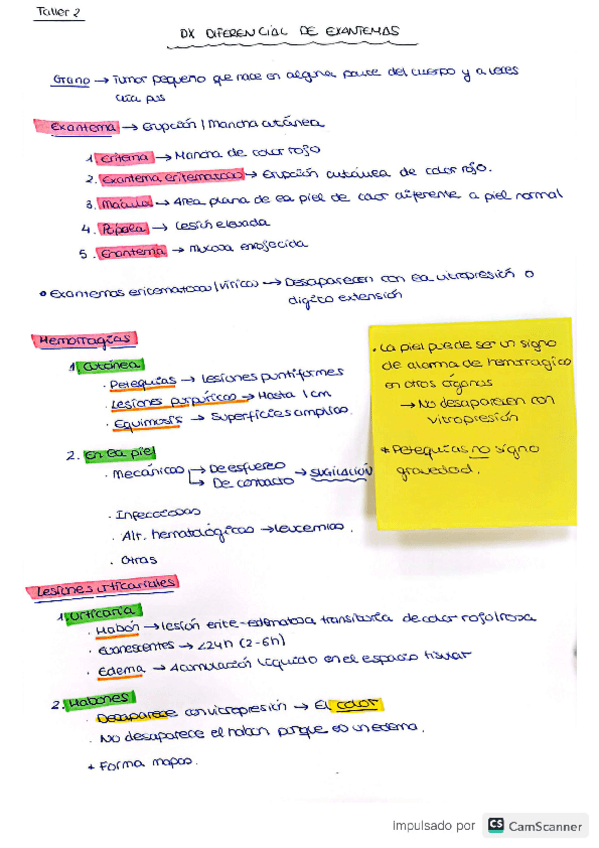 Taller 2
DX DIFERENCIAL DE EXANTEMAS
Grano → Tumor pequeño que nace en alguna parte del cuerpo y a veces
cría pus
Exantema → Erupción / Mancha cutánea
1. Eritema → Mancha de color rojo
2. Exantema eritematoso → Erupción cutánea de color rojo.
3. Mácula → Área plana de la piel de color diferente a piel normal
4. Pápula → Lesión elevada
5. Enantema → Mucosa enrojecida
• Exantemas eritematosos / víricos → Desaparecen con la vitropresión o
dígito extensión
Hemorragias
1. Cutánea
· Petequias → lesiones puntiformes
· Lesiones purpúricas → Hasta 1 cm
· Equimosis → Superficies amplias.
2. En la piel
· Mecánicas → De esfuerzo
→ De contacto → SUGILACIÓN
· Infecciosas
· Alt. hematológicas → leucemias.
· Otras
• La piel puede ser un signo
de alarma de hemorragias
en otros órganos
→ No desaparecen con
vitropresión
* Petequias no signo
gravedad.
Lesiones urticariales
1. Urticaria
· Habón → lesión erite-edematosa transitoria de color rojo/rosa
· Evanescentes → <24h (2-6h)
· Edema → Acumulación líquido en el espacio tisular
2. Habones
· Desaparece con vitropresión → El color
· No desaparece el habón porque es un edema.
+ Forma mapas.
Impulsado por CS CamScanner